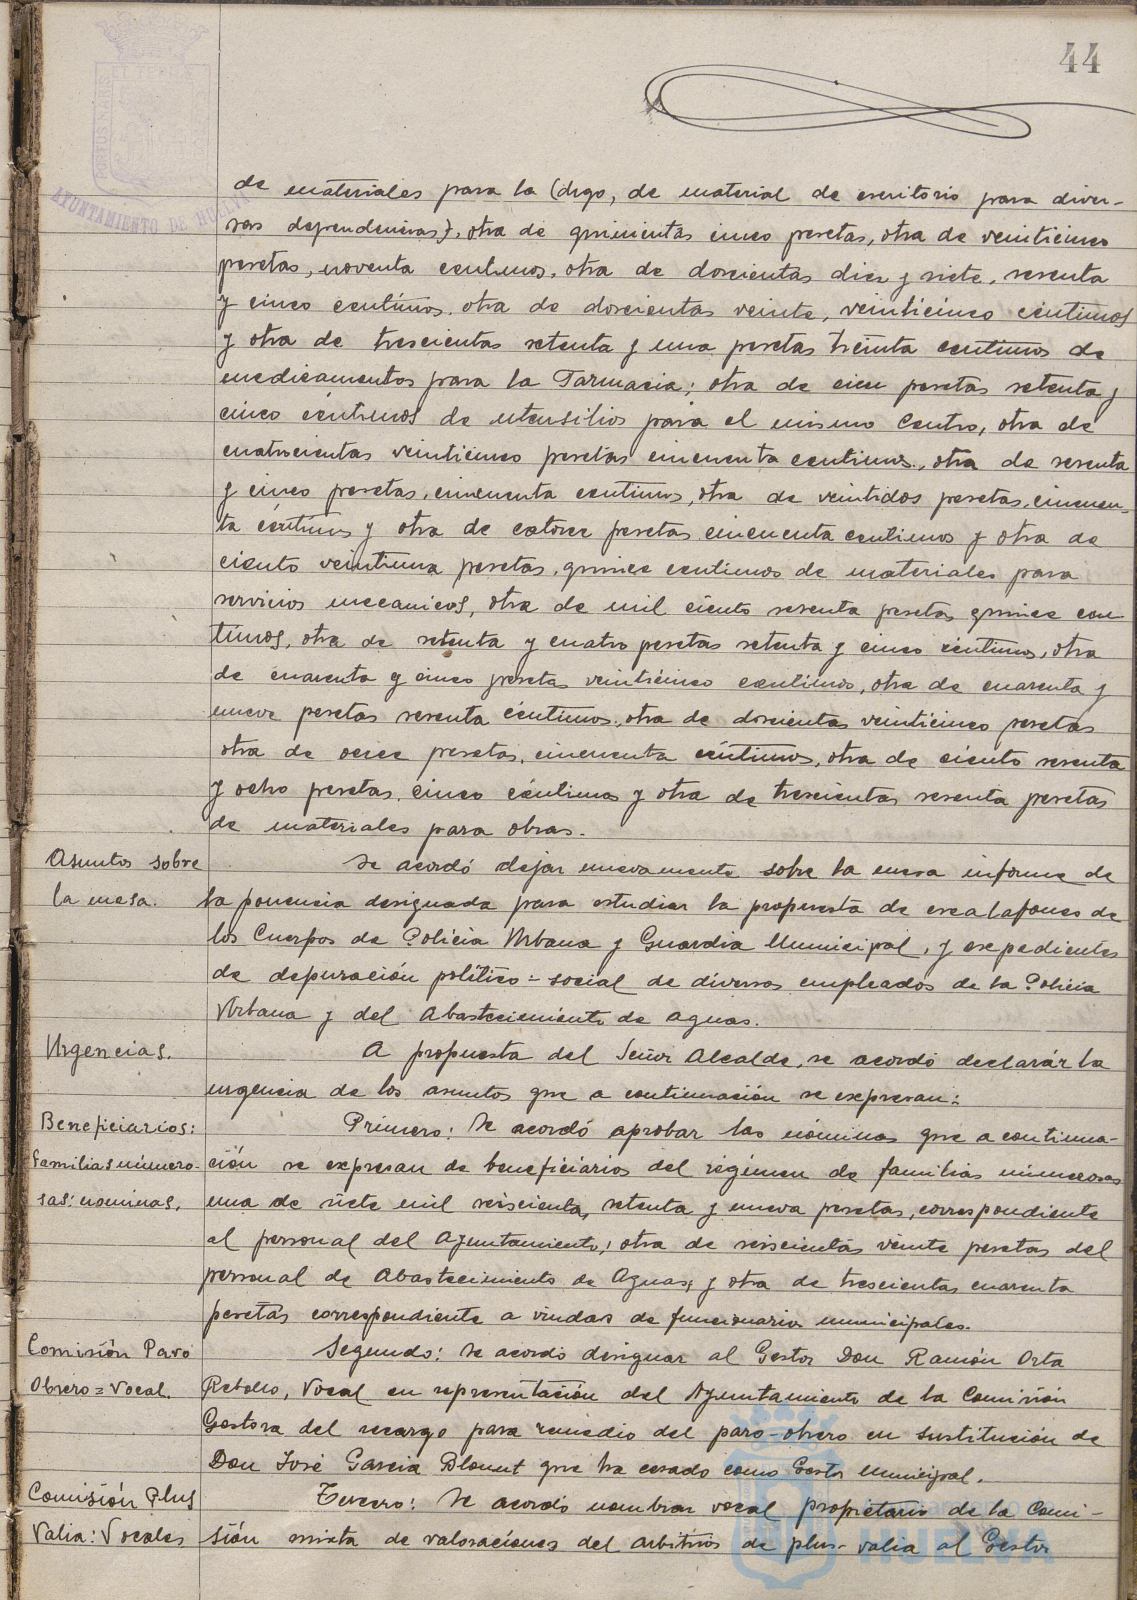 44
PORTUS MARIS ET TERRAE
AYUNTAMIENTO DE HUELVA
de materiales para la (digo, de material de escritorio para diver-
sas dependencias), otra de quinientas cinco pesetas, otra de veinticinco
pesetas, noventa centimos, otra de doscientas diez y siete, sesenta
y cinco centímos, otra de doscientas veinte, veinticinco céntimos
y otra de trescientas setenta y una pesetas treinta centimos de
medicamentos para la Farmacia; otra de cien pesetas setenta y
cinco céntimos de utensilios para el mismo Centro, otra de
cuatrocientas veinticinco pesetas cincuenta centimos, otra de sesenta
y cinco pesetas, cincuenta centimos, otra de veintidos pesetas, cincuen-
ta céntimos y otra de catorce pesetas cincuenta centimos y otra de
ciento veintiuna pesetas, quince centimos de materiales para
servicios mecanicos, otra de mil ciento sesenta pesetas quince cen
timos, otra de setenta y cuatro pesetas setenta y cinco céntimos, otra
de cuarenta y cinco pesetas veinticinco centimos, otra de cuarenta y
nueve pesetas sesenta céntimos, otra de doscientas veinticinco pesetas
otra de once pesetas, cincuenta céntimos, otra de ciento sesenta
y ocho pesetas, cinco céntimos y otra de trescientas sesenta pesetas
de materiales para obras.
Asuntos sobre
la mesa.
Se acordó dejar nuevamente sobre la mesa informe de
la ponencia designada para estudiar la propuesta de escalafones de
los Cuerpos de Policia Urbana y Guardia Municipal, y expedientes
de depuración político=social de diversos empleados de la Policia
Urbana y del Abastecimiento de Aguas.
Urgencias.
A propuesta del Señor Alcalde, se acordó declarár la
urgencia de los asuntos que a continuación se expresan:
Beneficiarios:
familias número-
sas: nominas.
Primero: Se acordó aprobar las nóminas que a continua-
ción se expresan de beneficiarios del régimen de familias numerosas
una de siete mil seiscienta, setenta y nueva pesetas, correspondiente
al personal del Ayuntamiento; otra de seiscientas veinte pesetas del
personal de Abastecimiento de Aguas; y otra de trescientas cuarenta
pesetas correspondiente a viudas de funcionarios municipales.
Comisión Paro
Obrero=Vocal.
Segundo: Se acordó designar al Gestor Don Ramón Orta
Rebollo, Vocal en representación del Ayuntamiento de la Comisión
Gestora del recargo para remedio del paro-obrero en sustitución de
Don José Garcia Blount que ha cesado como Gestor Municipal.
Comisión Plus
Valia: Vocales
Tercero: Se acordó nombrar vocal propietario de la Comi-
sión mixta de valoraciones del arbitrios de plus-valia al Gestor
HUELVA